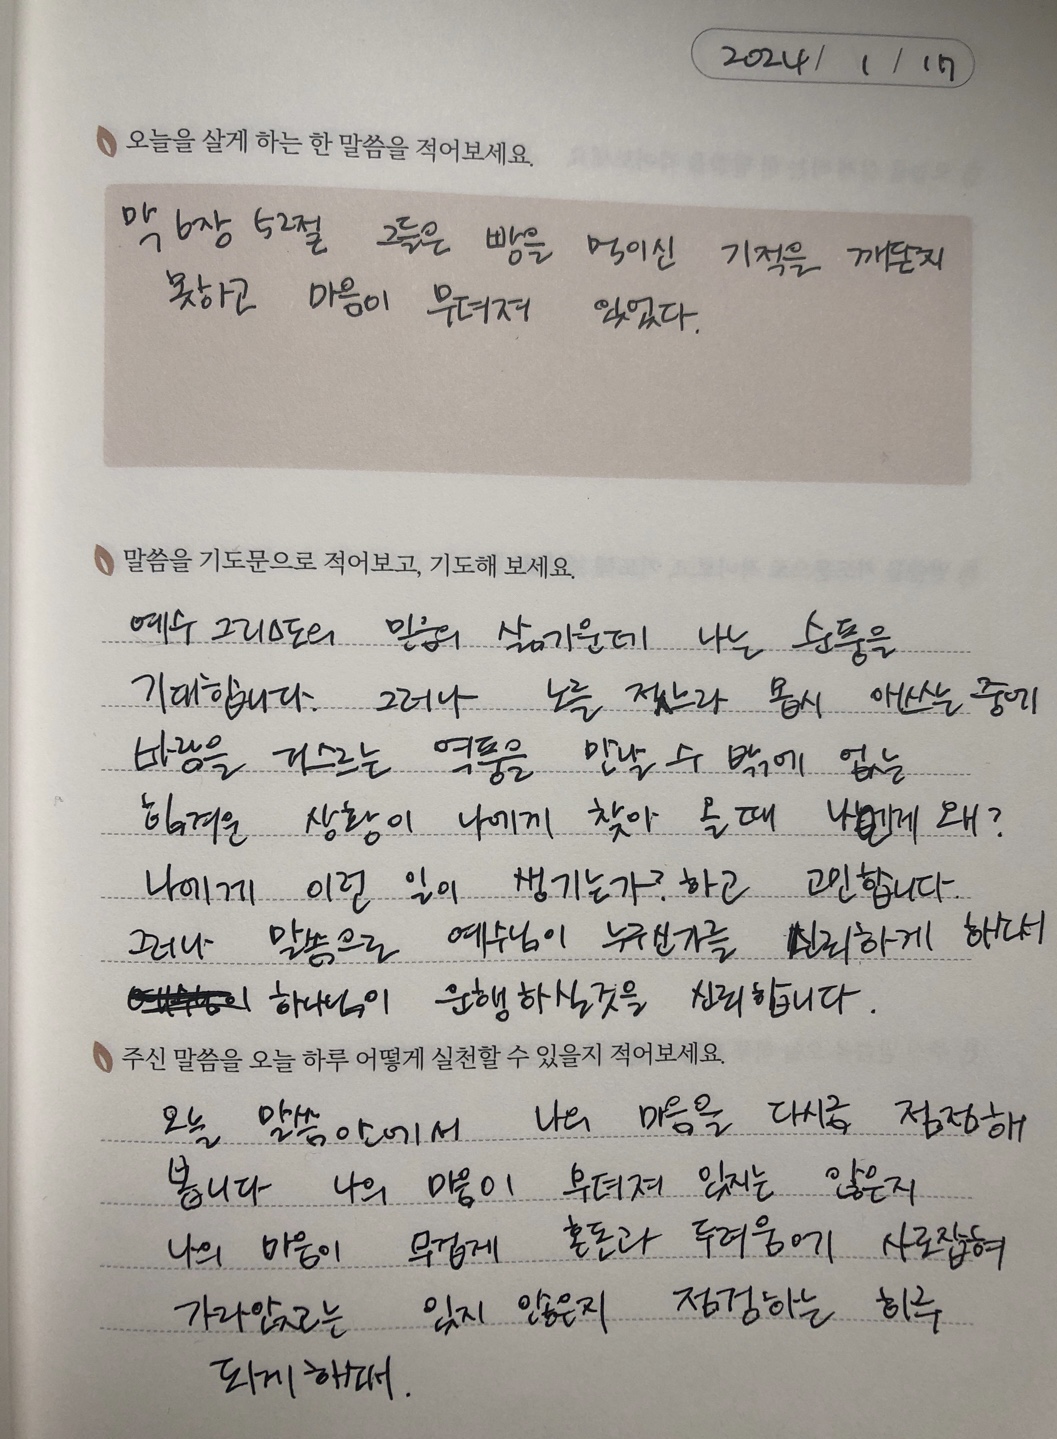 2024/ 1 / 17
오늘을 살게 하는 한 말씀을 적어보세요.
막 6장 52절 그들은 빵을 먹이신 기적을 깨닫지
못하고 마음이 무뎌져 있었다.
말씀을 기도문으로 적어보고, 기도해 보세요.
예수 그리스도의 믿음의 삶가운데 나는 순풍을
기대합니다. 그러나 노를 젓느라 몹시 애쓰는 중에
바람을 거스르는 역풍을 만날 수 밖에 없는
힘겨운 상황이 나에게 찾아 올 때 왜?
나에게 이런 일이 생기는가? 하고 고민합니다.
그러나 말씀으로 예수님이 누구신가를 신뢰하게 하소서
하나님이 운행하실것을 신뢰합니다.
주신 말씀을 오늘 하루 어떻게 실천할 수 있을지 적어보세요.
오늘 말씀 안에서 나의 마음을 다시금 점검해
봅니다 나의 마음이 무뎌져 있지는 않은지
나의 마음이 무겁게 혼돈과 두려움에 사로잡혀
가라앉고는 있지 않은지 점검하는 하루
되게 하소서.